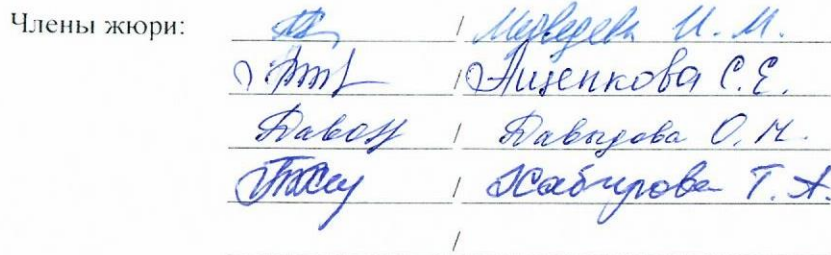 Члены жюри: / Медведева И. М.
/ Ащепкова С. Е.
Давыд / Давыдова О. Н.
/ Хабирова Т. А.
/